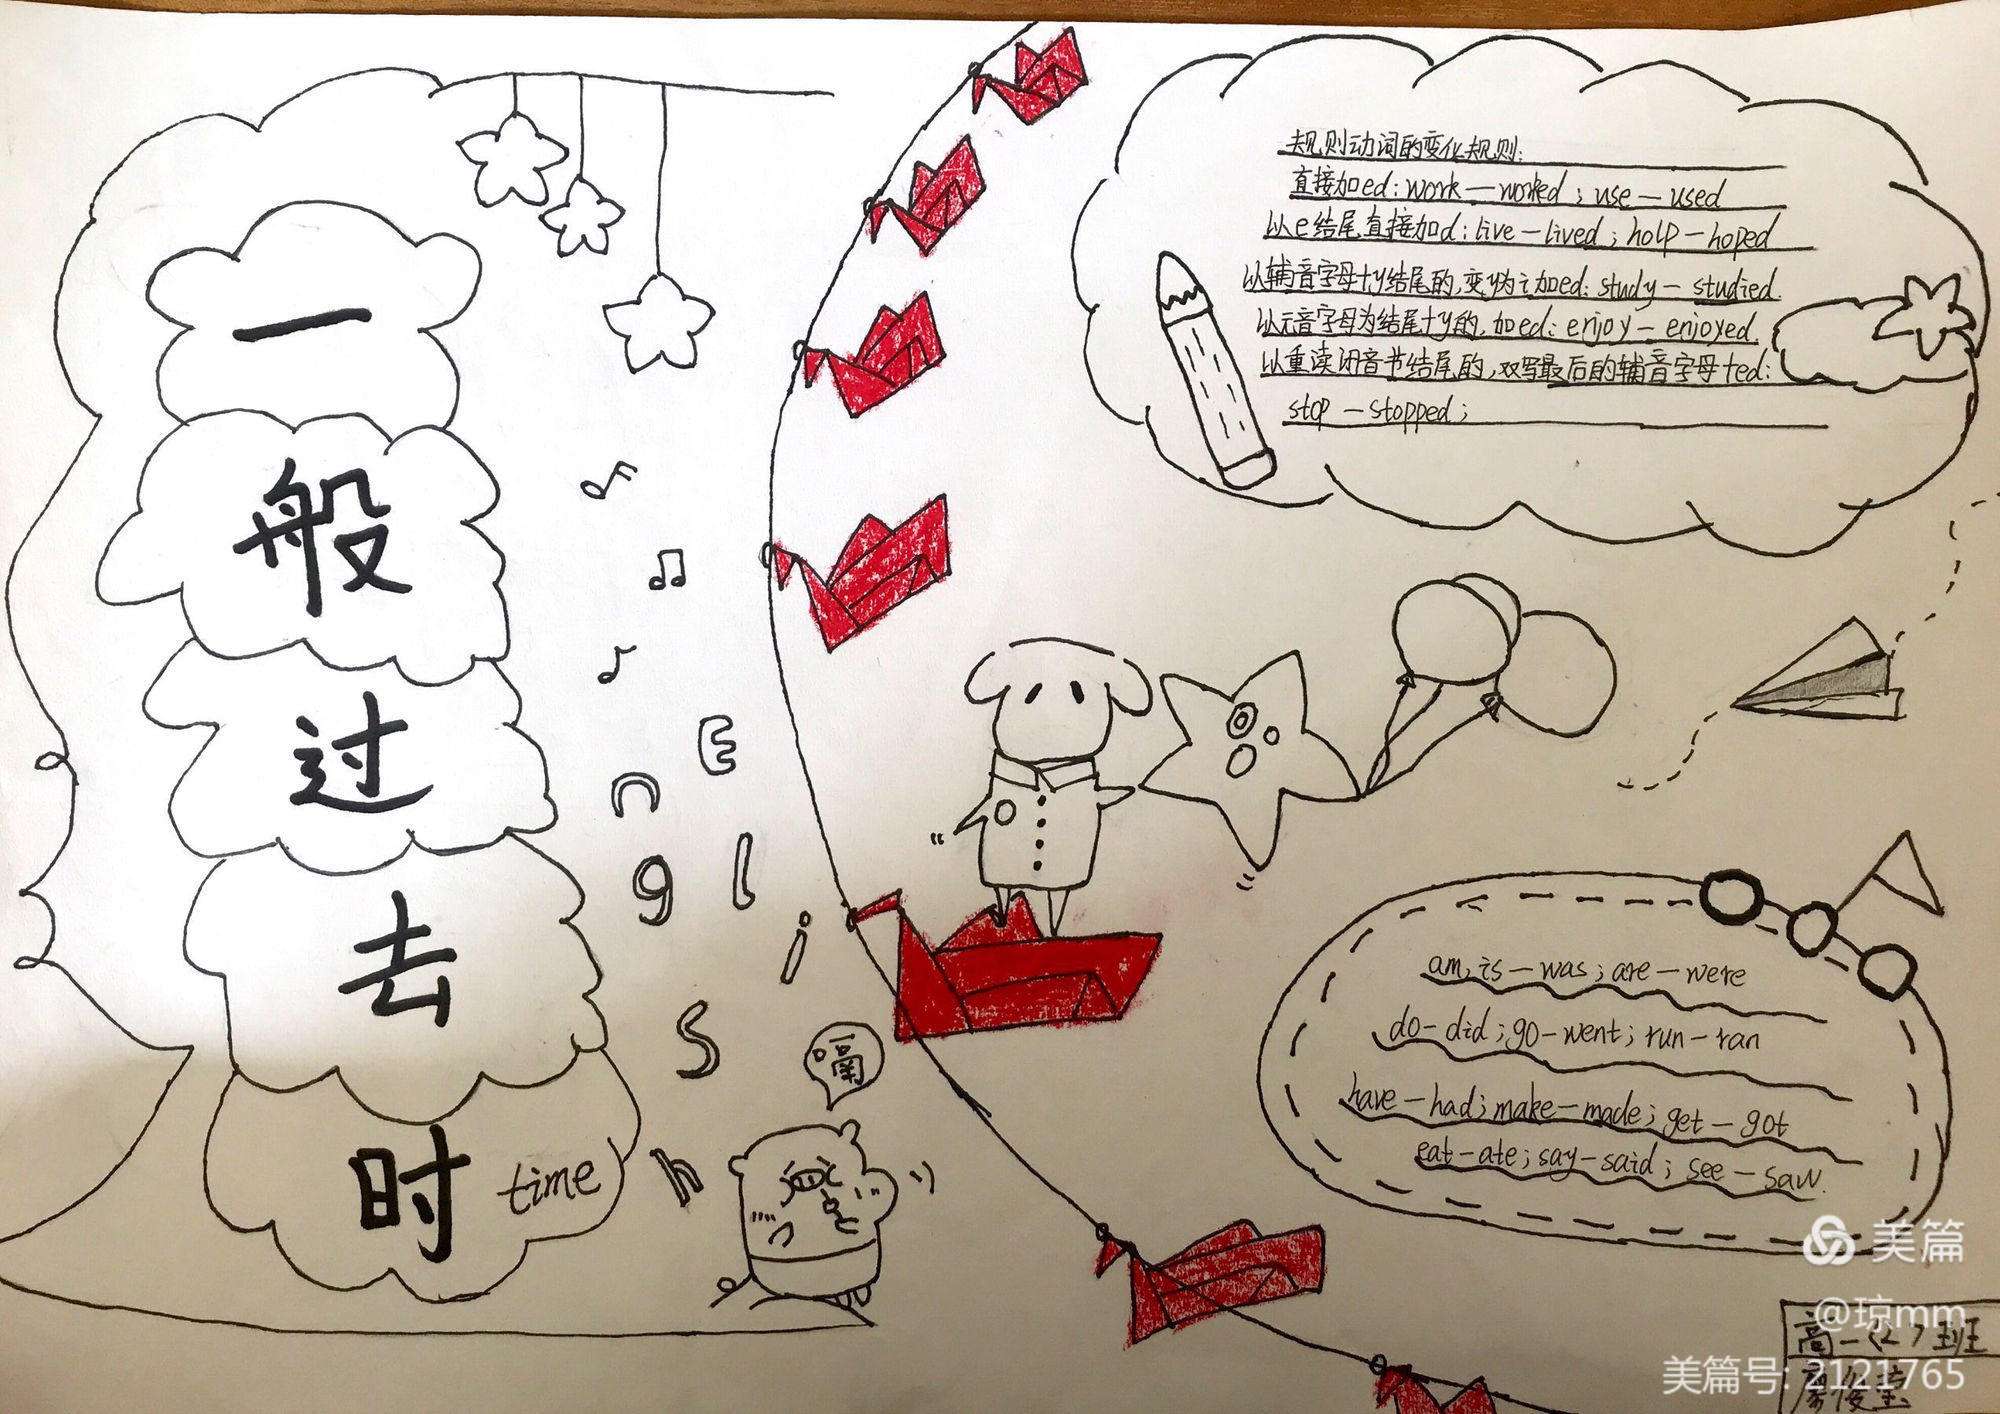 一
般
过
去
时 time
E
n
g
l
i
s
h
嗝
规则动词的变化规则:
直接加ed: work — worked ; use — used
以e结尾直接加d: live — lived ; holp — hoped
以辅音字母+y结尾的,变y为i加ed: study — studied.
以元音字母为结尾+y的,加ed: enjoy — enjoyed.
以重读闭音节结尾的,双写最后的辅音字母+ed:
stop — stopped ;
am, is — was ; are — were
do — did ; go — went ; run — ran
have — had ; make — made ; get — got
eat — ate ; say — said ; see — saw.
美篇
@琼mm
高一(2)班
美篇号: 2121765